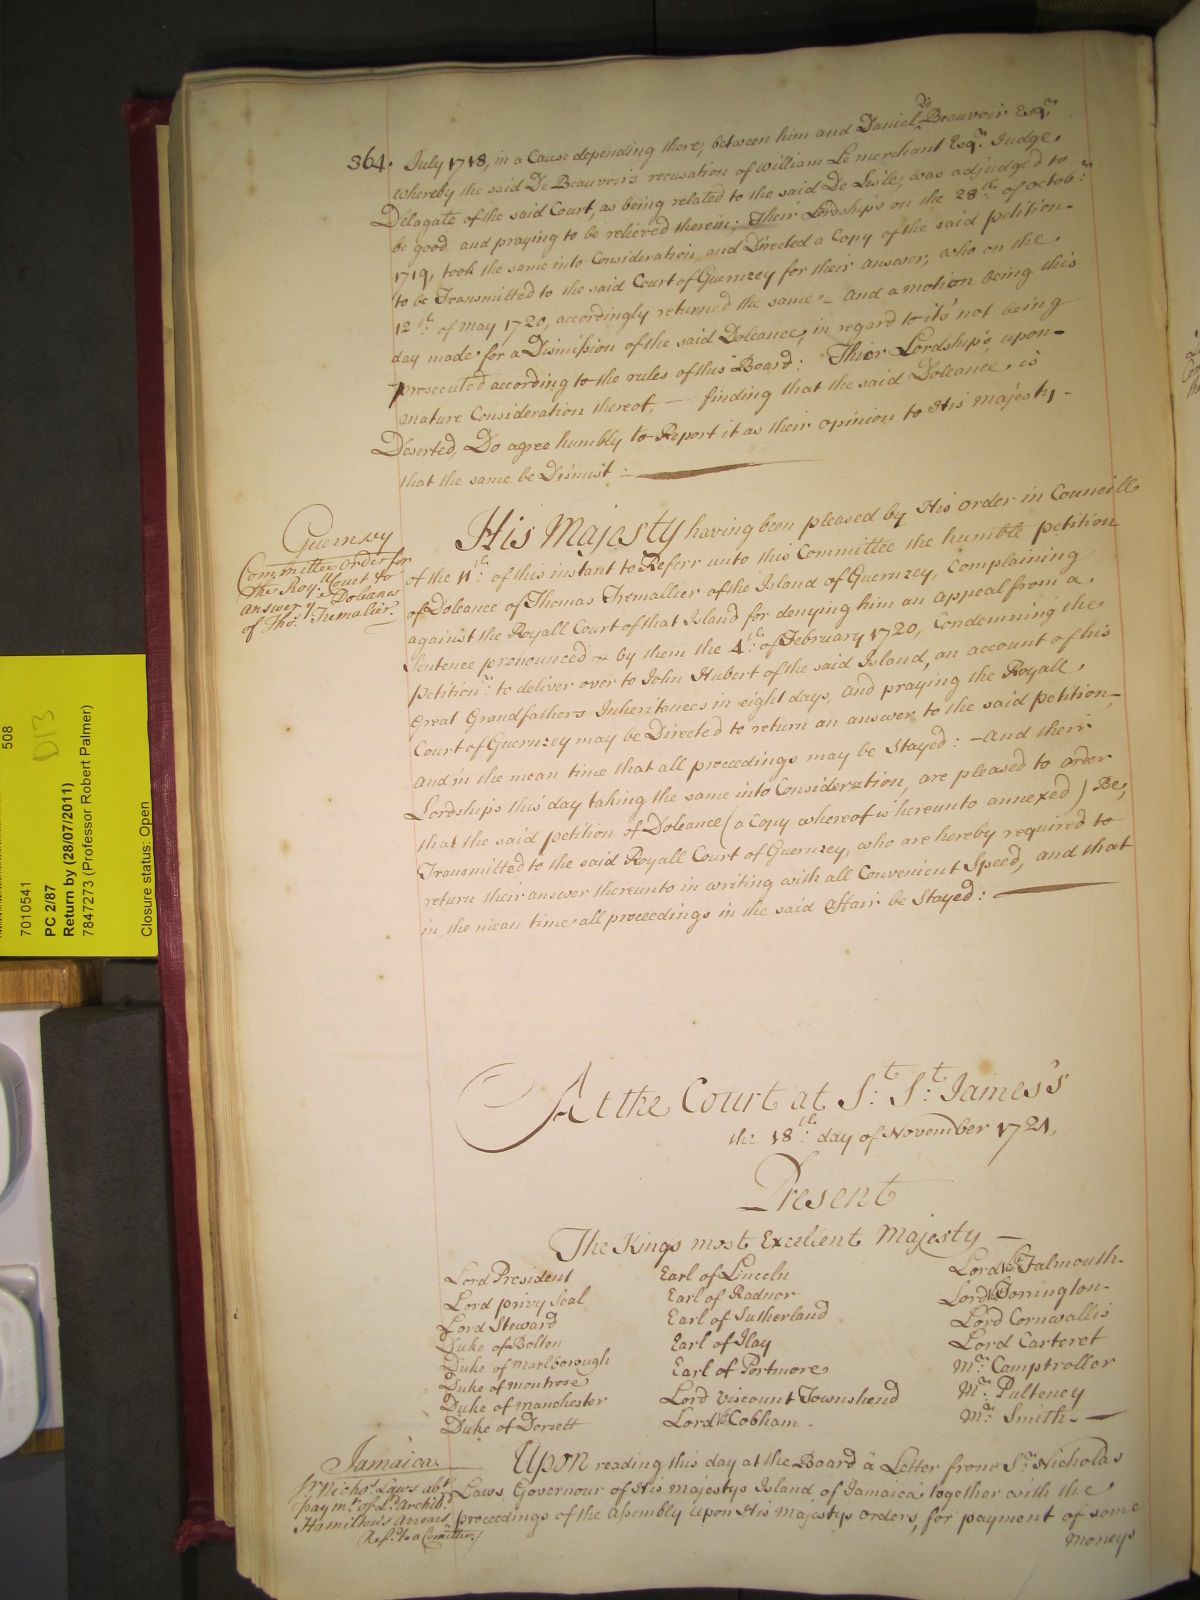 364. July 1718, in a Cause depending there, between him and Daniel De Beauvoir Esqr.
whereby the said De Beauvoir's recusation of William Le merchant Esqr. Judge
Delagate of the said Court, as being related to the said De Lisle, was adjudged to
be good and praying to be relieved therein; Their Lordships on the 28th. of Octobr:
1719, took the same into Consideration, and Directed a Copy of the said petition
to be Transmitted to the said Court of Guernzey for their answer, who on the
12th. of May 1720, accordingly returned the same - And a motion being this
day made for a Dismission of the said Doleance, in regard to it's not being
prosecuted according to the rules of this Board: Thier Lordship's upon
mature Consideration thereof, - finding that the said Doleance, is
Deserted, Do agree humbly to Report it as their opinion to His Majesty -
that the same be Dismist:
Guernsey
Committee order for
the Roy:ll Court to
answer ye. Doleance
of Tho: Tremalier.
His Majesty having been pleased by His Order in Councill
of the 11th: of this instant to Referr unto this Committee the humble petition
of Doleance of Thomas Tremallier of the Island of Guernzey, Complaining
against the Royall Court of that Island for denying him an appeal from a
Sentence pronounced by them the 4th: of February 1720, Condemning the
petitionr: to deliver over to John Hubert of the said Island, an account of his
Great Grandfathers Inheritances in eight days, and praying the Royall
Court of Guernzey may be Directed to return an answer to the said petition,
and in the mean time that all proceedings may be Stayed: - And their
Lordships this day taking the same into Consideration, are pleased to order
that the said petition of Doleance (a Copy whereof is hereunto annexed) Be,
Transmitted to the said Royall Court of Guernzey, who are hereby required to
return their answer thereunto in writing with all Convenient Speed, and that
in the mean time all proceedings in the said Affair be Stayed:
At the Court at St: St: James's
the 18th: day of November 1721,
Present
The Kings most Excellent Majesty
Lord President Earl of Lincoln Lord Vist Falmouth
Lord privy Seal Earl of Radnor Lord Vist Torrington
Lord Steward Earl of Sutherland Lord Cornwallis
Duke of Bolton Earl of Ilay Lord Carteret
Duke of Marlborough Earl of Portmore Mr: Comptroller
Duke of Montrose Lord Viscount Townshend Mr: Pulteney
Duke of Manchester Lord Vist Cobham Mr: Smith
Duke of Dorsett
Jamaica
Sr Nicho: Laws abt.
paymt. of Ld. Archib:
Hamilton's Arrears
Refd. to a Comittee
Upon reading this day at the Board a Letter from Sr: Nicholas
Laws Governour of His Majestys Island of Jamaica together with the
proceedings of the Assembly upon His Majestys orders, for payment of some
Moneys
508
D13
7010541
PC 2/87
Return by (28/07/2011)
7847273 (Professor Robert Palmer)
Closure status: Open